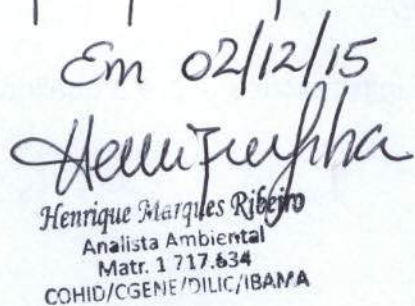 Em 02/12/15
Henrique Marques Ribeiro
Analista Ambiental
Matr. 1 717.634
COHID/CGENE/DILIC/IBAMA